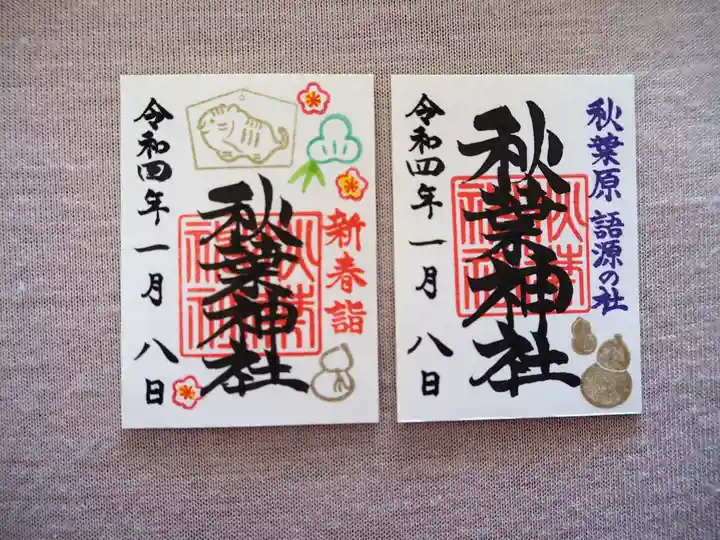 新春詣
秋葉神社
秋葉神社
令和四年一月八日
秋葉原 語源の社
秋葉神社
秋葉神社
令和四年一月八日